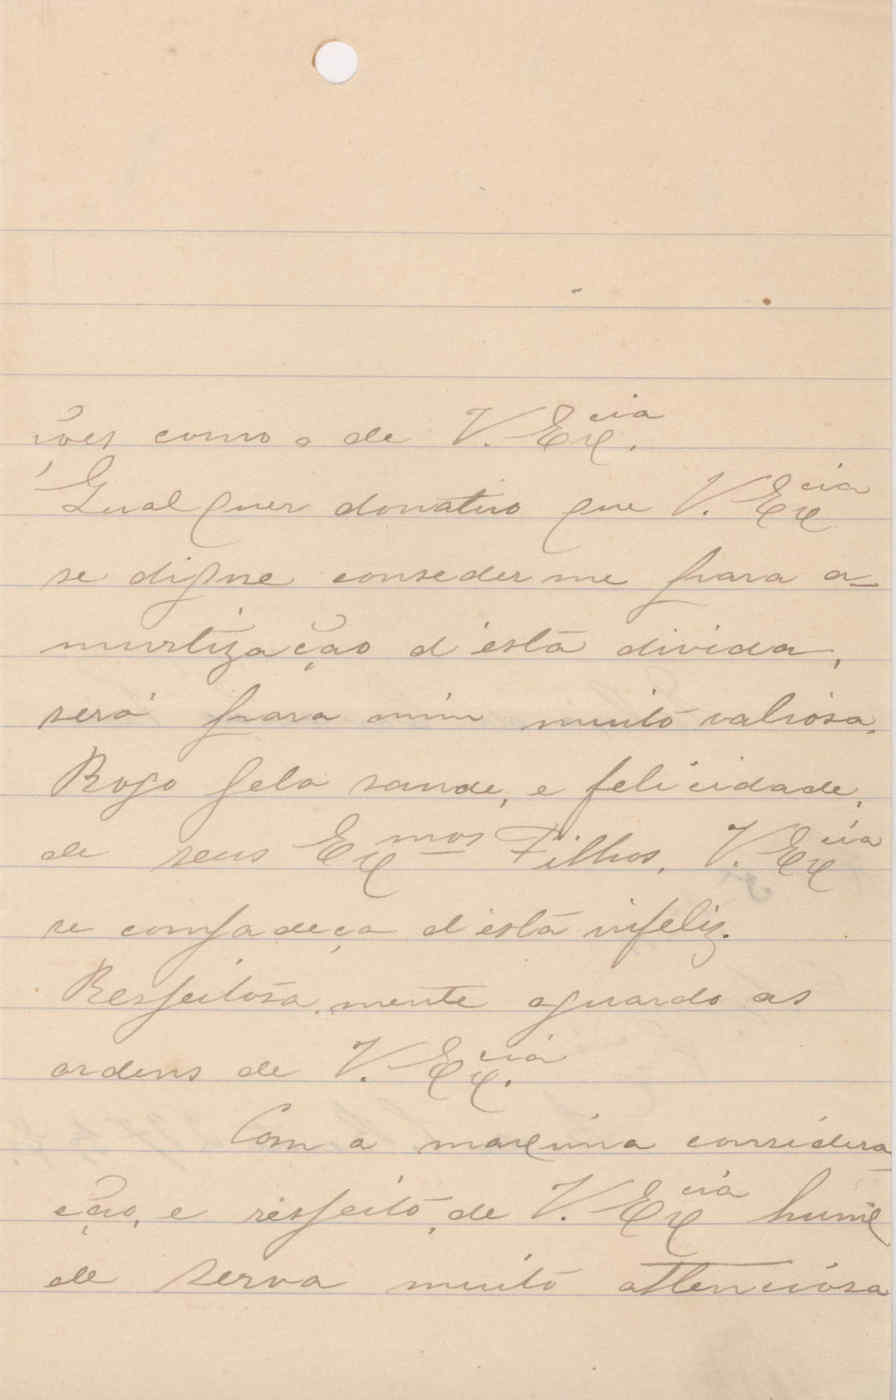 ções como o de V. Ex.cia
Qualquer donativo que V. Excia
se digne conseder me para a-
murtização d'estã divida,
será para mim muitõ valiosa.
Rogo pela saude, e felicidade,
de seus Exmos Filhos, V. Excia
se compadeça d'estã infeliz.
Respeitosa mente aguardo as
ordens de V. Ex.cia
Com a maxima considera
ção, e respeitõ, de V. Excia humil
de serva muitõ attenciosa